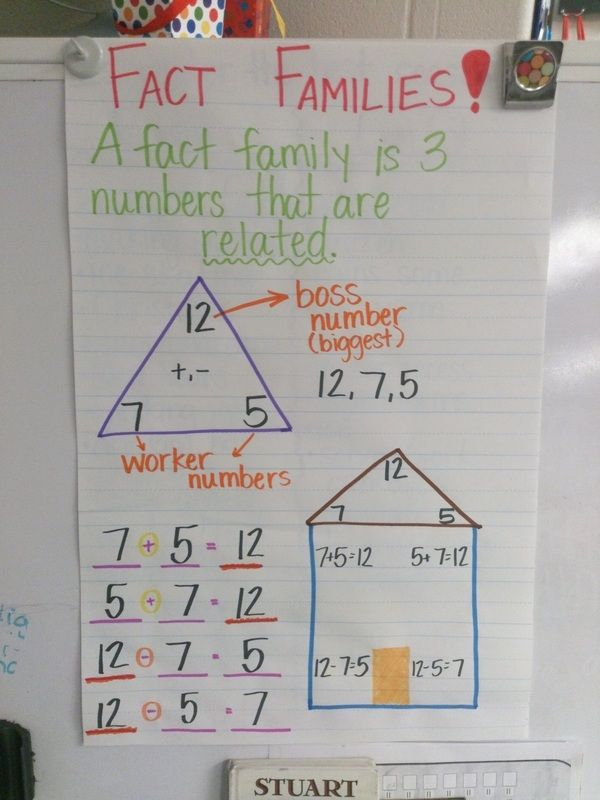 FACT FAMILIES!
A fact family is 3
numbers that are
related.
12
boss
number
(biggest)
+,-
12, 7, 5
7
5
worker
numbers
12
7
5
7 + 5 = 12
5 + 7 = 12
12 - 7 = 5
12 - 5 = 7
7+5=12
5+7=12
12-7=5
12-5=7
STUART